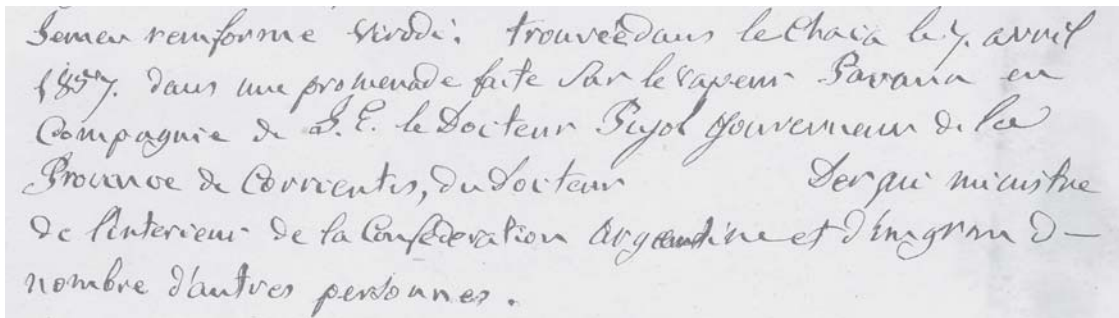 Semen reniforme viridi: trouvée dans le Chaca le 7. avril
1857. dans une promenade faite sur le vapeur Pavana en
Compagnie de S. E. le Docteur Pujol gouverneur de la
Province de Corrientes, du Docteur Derqui ministre
de l'interieur de la Confederation Argentine et d'un gran d-
nombre d'autres personnes.